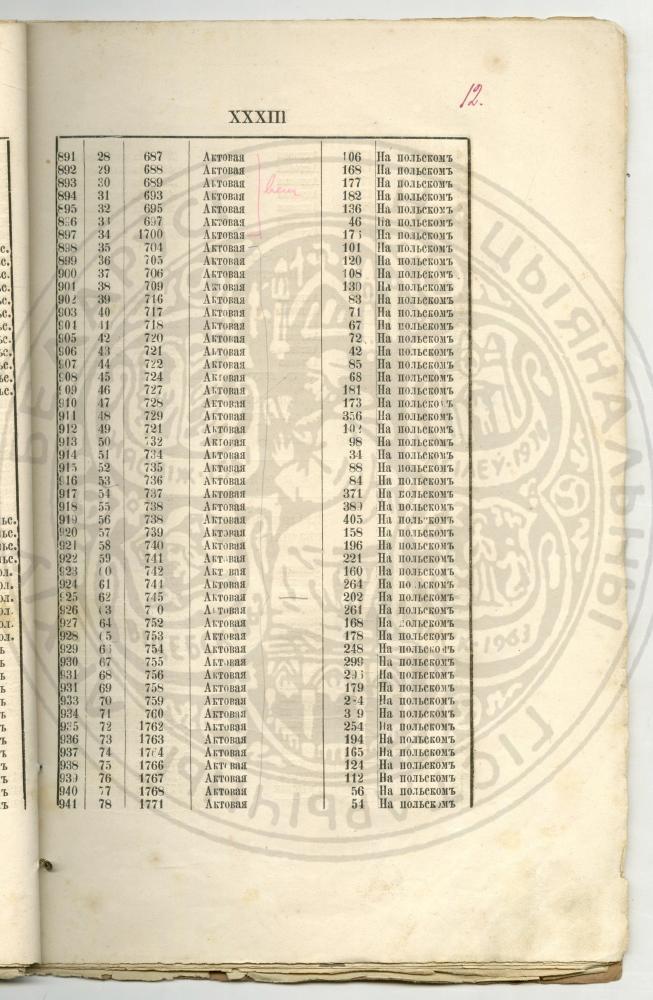 12.
XXXIII
891 28 687 Актовая 106 На польскомъ
892 29 688 Актовая 168 На польскомъ
893 30 689 Актовая 177 На польскомъ
894 31 693 Актовая 182 На польскомъ
895 32 695 Актовая 136 На польскомъ
896 697 Актовая 46 На польскомъ
897 34 1700 Актовая На польскомъ
898 35 704 Актовая 101 На польскомъ
899 36 705 Актовая 120 На польскомъ
900 37 706 Актовая 108 На польскомъ
901 38 709 Актовая 130 На польскомъ
902 39 716 Актовая 83 На польскомъ
903 40 717 Актовая 71 На польскомъ
904 41 718 Актовая 67 На польскомъ
905 42 720 Актовая 72 На польскомъ
906 43 721 Актовая 42 На польскомъ
907 44 722 Актовая 85 На польскомъ
908 45 724 Актовая 68 На польскомъ
909 46 727 Актовая 181 На польскомъ
910 47 728 Актовая 173 На польскомъ
911 48 729 Актовая 356 На польскомъ
912 49 721 Актовая На польскомъ
913 50 732 Актовая 98 На польскомъ
914 51 734 Актовая 34 На польскомъ
915 52 735 Актовая 88 На польскомъ
916 53 736 Актовая 84 На польскомъ
917 54 737 Актовая 371 На польскомъ
918 55 738 Актовая 389 На польскомъ
919 56 738 Актовая 405 На польскомъ
920 57 739 Актовая 158 На польскомъ
921 58 740 Актовая 196 На польскомъ
922 59 741 Актовая 221 На польскомъ
923 60 742 Актовая 160 На польскомъ
924 61 744 Актовая 264 На польскомъ
925 62 745 Актовая 202 На польскомъ
926 63 Актовая 261 На польскомъ
927 64 752 Актовая 168 На польскомъ
928 65 753 Актовая 178 На польскомъ
929 66 754 Актовая 248 На польскомъ
930 67 755 Актовая 299 На польскомъ
931 68 756 Актовая На польскомъ
931 69 758 Актовая 179 На польскомъ
933 70 759 Актовая На польскомъ
934 71 760 Актовая На польскомъ
935 72 1762 Актовая 254 На польскомъ
936 73 1763 Актовая 194 На польскомъ
937 74 1764 Актовая 165 На польскомъ
938 75 1766 Актовая 124 На польскомъ
939 76 1767 Актовая 112 На польскомъ
940 77 1768 Актовая 56 На польскомъ
941 78 1771 Актовая 54 На польскомъ